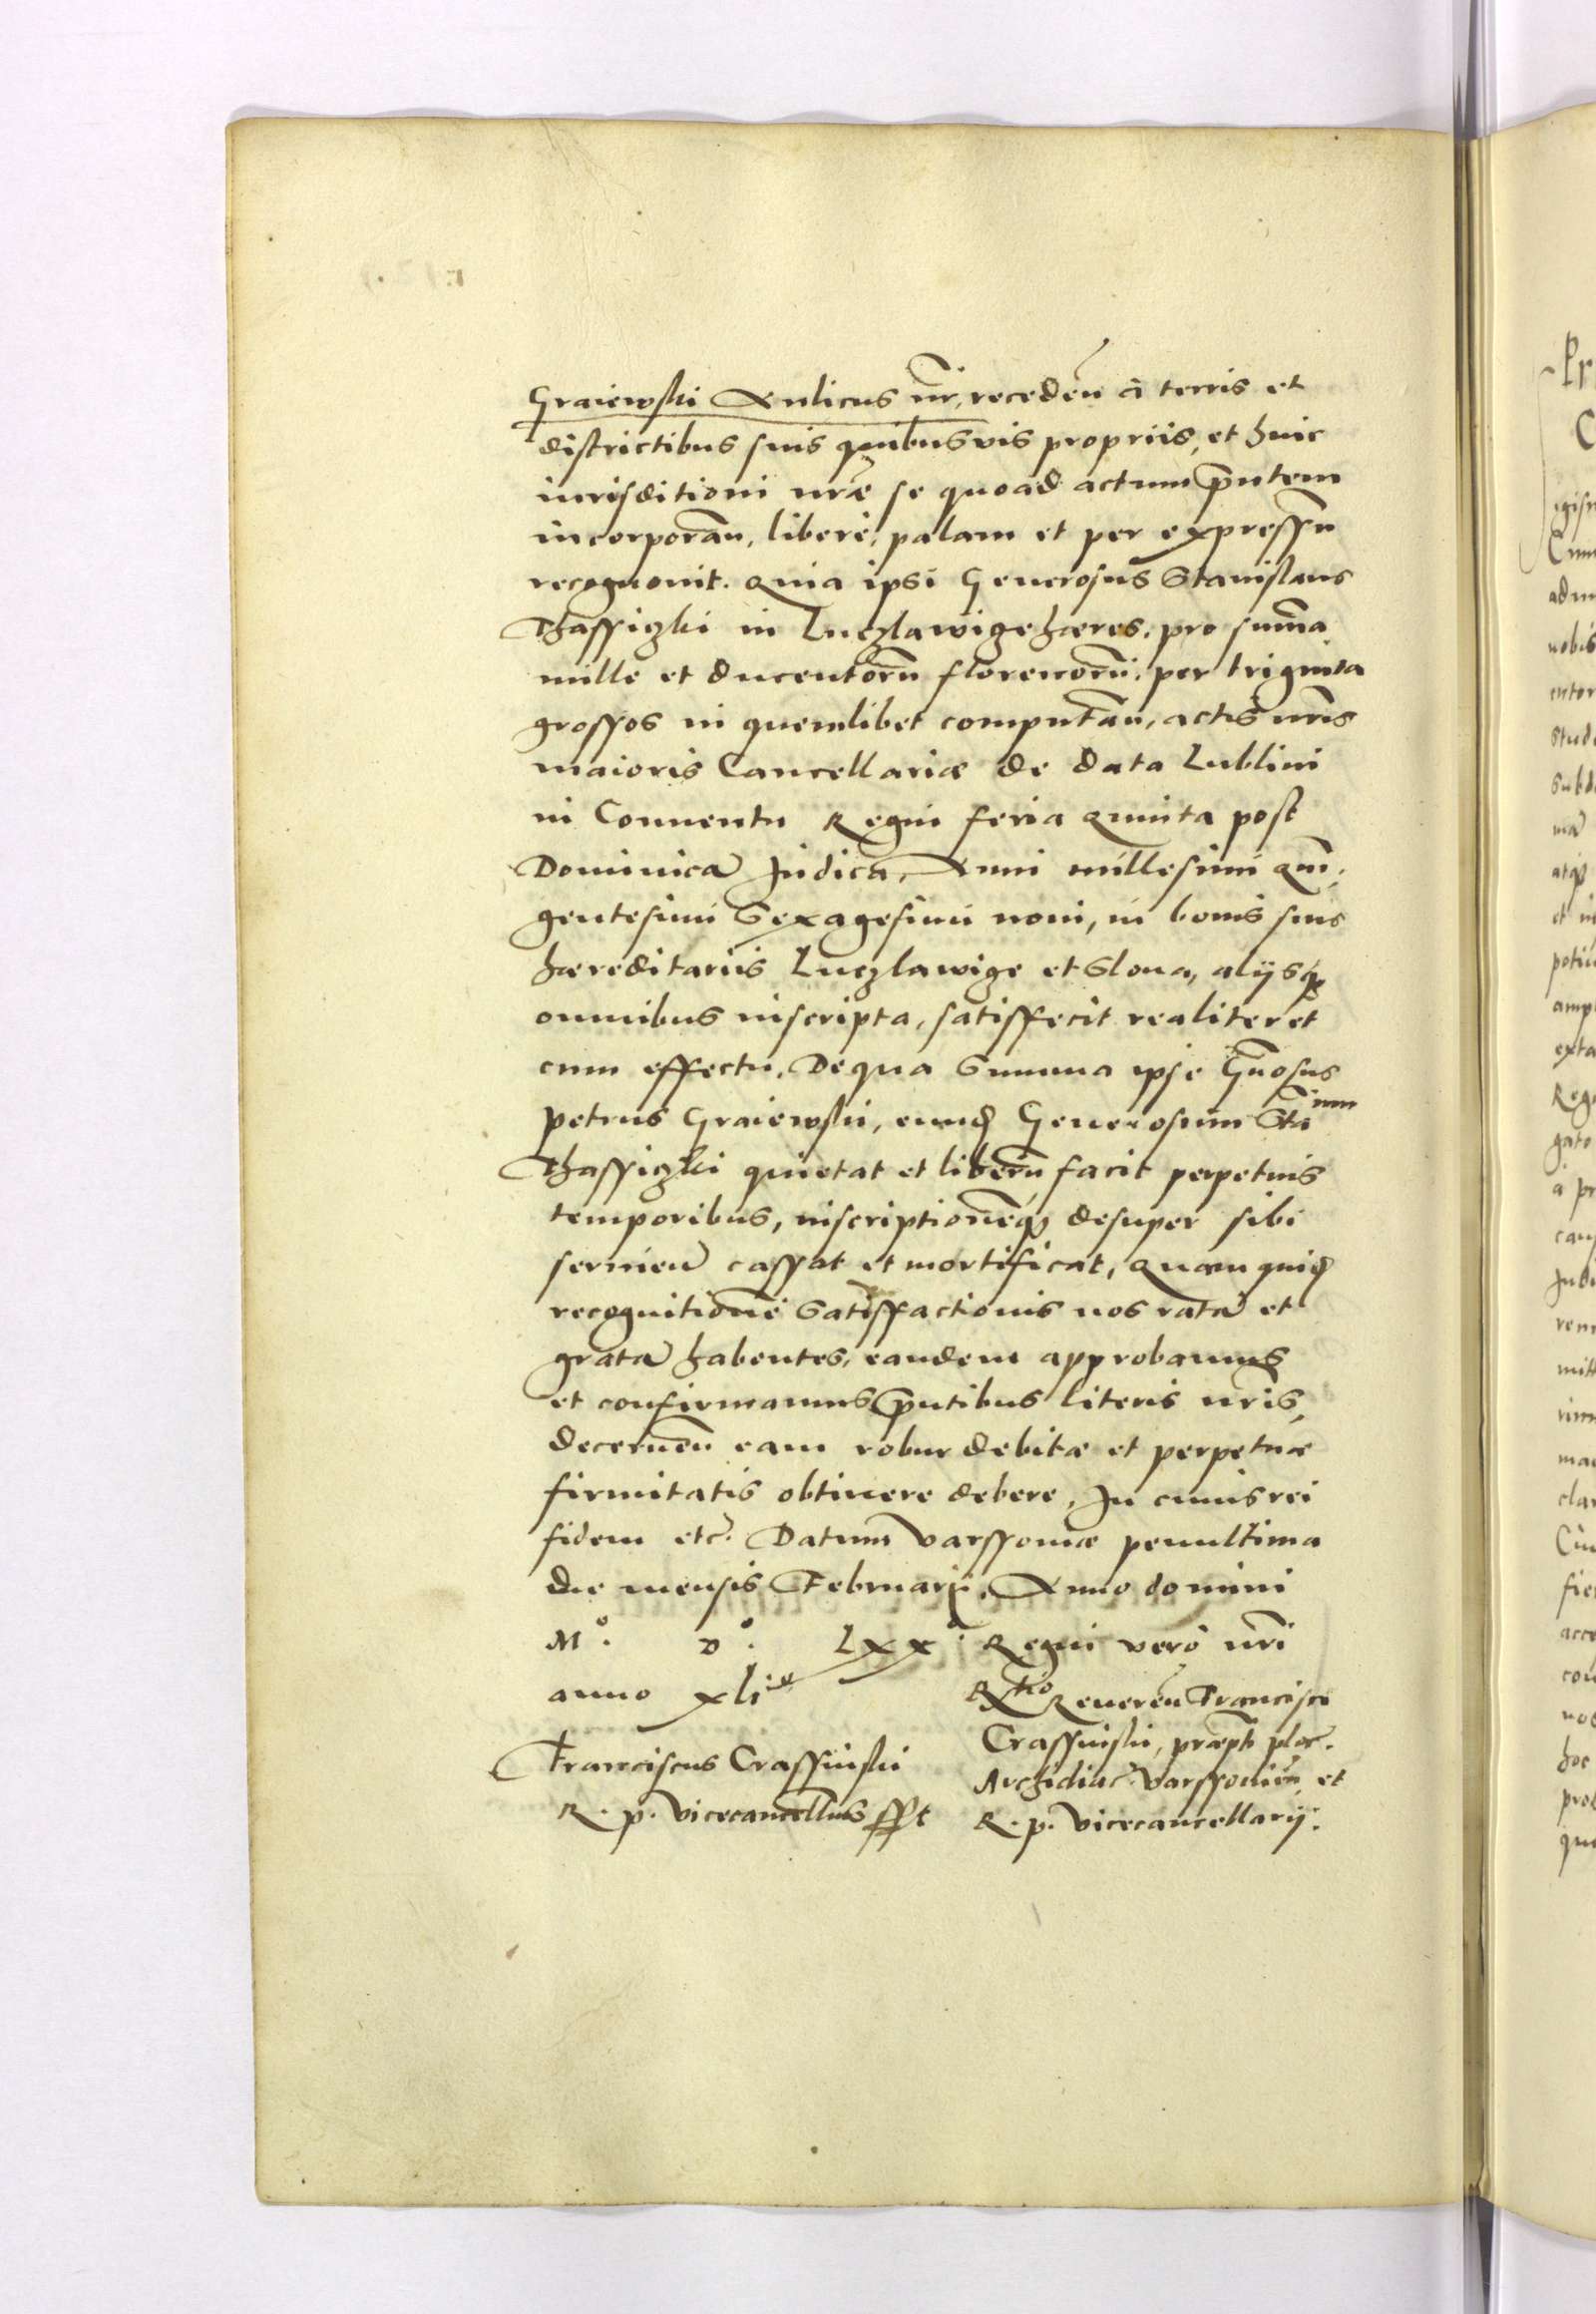 Graiewski Aulicus nr, receden à terris et
districtibus suis quibusvis propriis, et huic
iurisditioni nrae se quoad actum pntem
incorporan, liberè, palam et per expressu
recognouit. Quia ipsi Generosus Stanislaus
Thassiczki in Luczlawicze haeres, pro suma
mille et ducentoru florenoru, per triginta
grossos in quemlibet computan, actis nris
maioris Cancellariae de data Lublini
in Conuentu Regni feria Quinta post
Dominica Judica, Anni millesimi Quin
gentesimi Sexagesimi noni, in bonis suis
haereditariis Luczlawicze et Slona, alijsq
omnibus inscripta, satisfecit realiter et
cum effectu, De qua Summa ipse Gnosus
Petrus Graiewski, eund Generosum Sta num
Thassiczki quietat et liberu facit perpetuis
temporibus, inscriptioneq desuper sibi
seruien cassat et mortificat, Quam quid
recognitione Satisfactionis nos rata et
grata habentes, eandem approbamus
et confirmamus pntibus literis nris,
decernen eam robur debitae et perpetuae
firmitatis obtinere debere, In cuius rei
fidem etc. Datum Varssouiae penultima
die mensis Februarij, Anno domini
Mo. Do. Lxxo. Regni verò nri
anno xlio
Rtio Reueren Francisci
Crassinski, praepti ploc.
Franciscus Crassinski
Archidiac. Varssouien et
R. p. Vicecancellarius sst
R. p. Vicecancellarij.